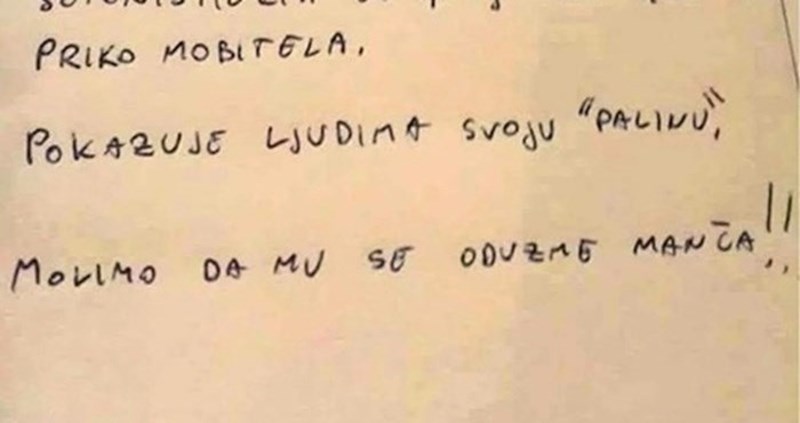 PRIKO MOBITELA.
POKAZUJE LJUDIMA SVOJU "PALINU",
MOLIMO DA MU SE ODUZME MANČA!!